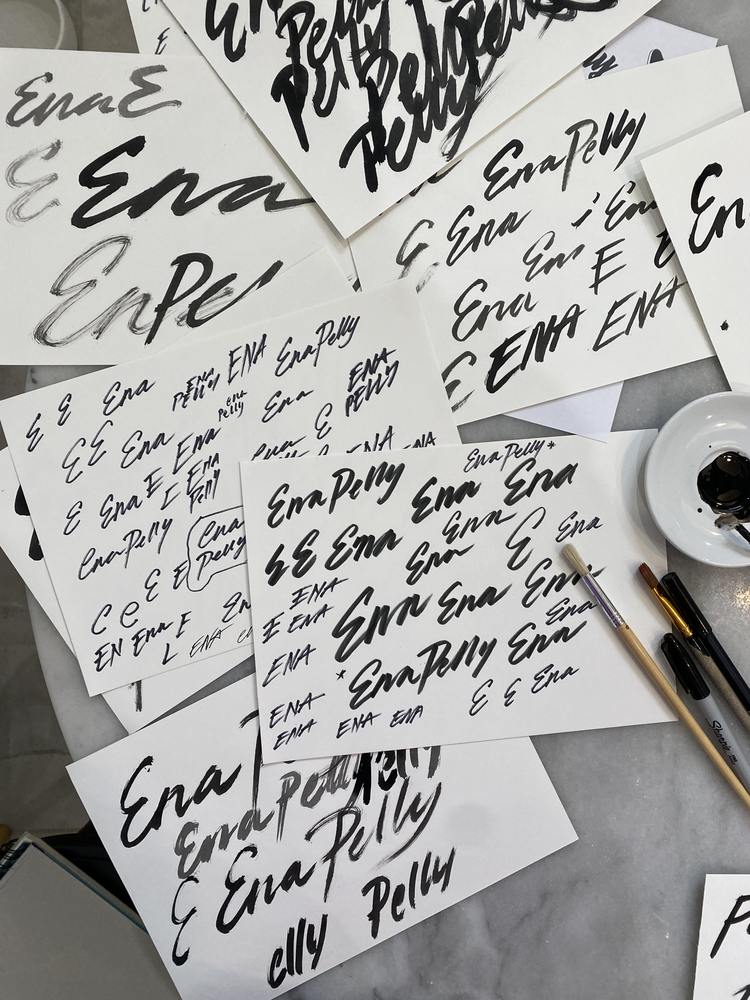 EnaE
E Ena
EnPel
Pelly
Pelly
Pelly
EnaPelly
E Ena
Ena Ena
Ena E E
E ENA ENA
En
E E Ena PELLY ENA EnaPelly
ena Pelly
E E Ena Ena ENA PELLY
E Ena E Ena Ena E
E ENA Pelly ENA ENA
EnaPelly
Ena Pelly
C e E E
EN Ena E En
L ENA
EnaPelly EnaPelly*
E E Ena Ena Ena
Ena Ena E Ena
ENA
E ENA Ena Ena Ena
ENA Ena
* EnaPelly Ena
ENA E E Ena
ENA ENA ENA
Ena
Ena Pelly Pelly
E Ena Pelly
elly Pelly
Sharpie
P